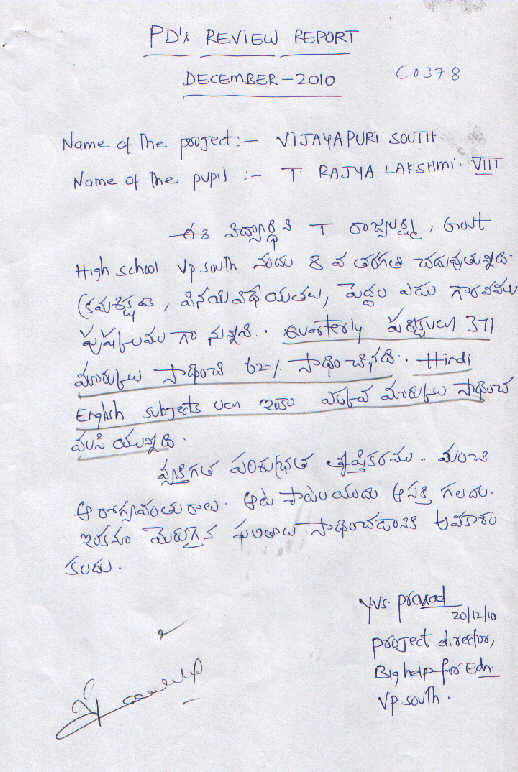 PD's REVIEW REPORT
DECEMBER-2010
C0378
Name of the project:- VIJAYAPURI SOUTH
Name of the pupil :- T RAJYA LAKSHMI. VIII
ఈ విద్యార్థిని T రాజ్యలక్ష్మి, Govt
High school Vp south నందు 8 వ తరగతి చదువుతున్నది.
క్రమశిక్షణ, వినయవిధేయతలు, పెద్దల ఎడల గౌరవము
పుష్కలముగా నున్నవి. Quarterly పరీక్షలలో 371
మార్కులు సాధించి 62% సాధించినది. Hindi
English subjects లలో ఇంకా ఎక్కువ మార్కులు సాధించ
వలసి యున్నది.
వ్యక్తిగత పరిశుభ్రత తృప్తికరము. మంచి
ఆరోగ్యవంతురాలు. ఆట పాటలయందు ఆసక్తి గలదు.
ఇంకనూ మెరుగైన ఫలితాలు సాధించడానికి అవకాశం
కలదు.
YVS. Prasad
20/12/10
project director,
Big help for Edn
VP South.